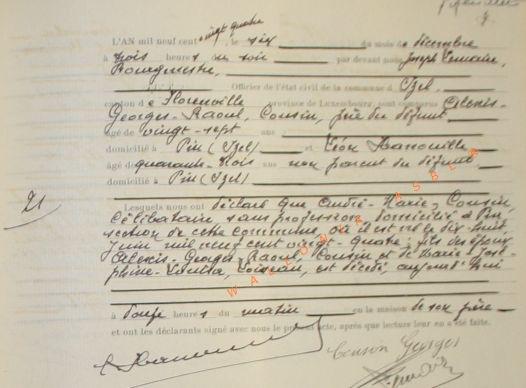 L'AN mil neuf cent vingt quatre, le six du mois de décembre
à trois heures du soir par devant nous Joseph
Bourgmestre,
Officier de l'état civil de la commune d'Izel
canton de Florenville province de Luxembourg, sont comparus Alexis-
Georges-Raoul, Consin, père du défunt
âgé de vingt-sept ans
domicilié à Pin (Izel) et Léon
âgé de quarante-trois ans non parent du défunt
domicilié à Pin (Izel)
21
Lesquels nous ont déclaré que André-Marie, Consin,
célibataire sans profession, domicilié à Pin
section de cette commune, où il est né le dix-huit
Juin mil neuf cent vingt-quatre, fils des époux
Alexis-Georges-Raoul, Consin et de Marie-José-
phine- est décédé aujourd'hui
à douze heures du matin en la maison de son père
et ont les déclarants signé avec nous le présent acte, après que lecture leur en a été faite.
Georges
WALLONIE ASBL